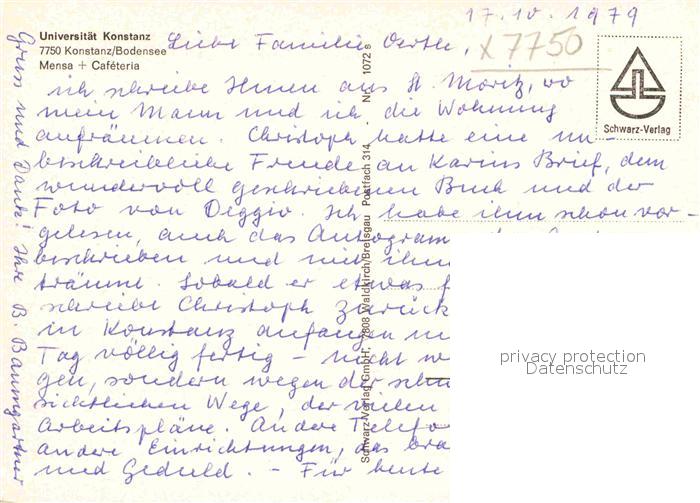 Universität Konstanz
7750 Konstanz/Bodensee
Mensa + Cafétéria
17.10.1979
x 7750
Schwarz-Verlag
Liebe Familie Oertle,
ich schreibe Ihnen aus St. Moritz, wo
mein Mann und ich die Wohnung
aufräumen. Christoph hatte eine un-
beschreibliche Freude an Karins Brief, dem
wundervoll geschriebenen Buch und der
Foto von Deggio. Ich habe ihm schon vor-
gelesen, auch das Autogram
beschrieben und mit ihm
träumt. Sobald er etwas
schreibt Christoph zurück
in Konstanz anfangen
Tag völlig fertig - nicht w
gen, sondern wegen der
sichtlichen Wege, der vielen
Arbeitspläne. Andere Telefo
andere Einrichtungen, das bra
und Geduld. - Für heute
Gruss und Dank! Ihre B. Baumgartner
Schwarz-Verlag GmbH, 7808 Waldkirch/Breisgau Postfach 314 - Nr. 1072 s
privacy protection
Datenschutz